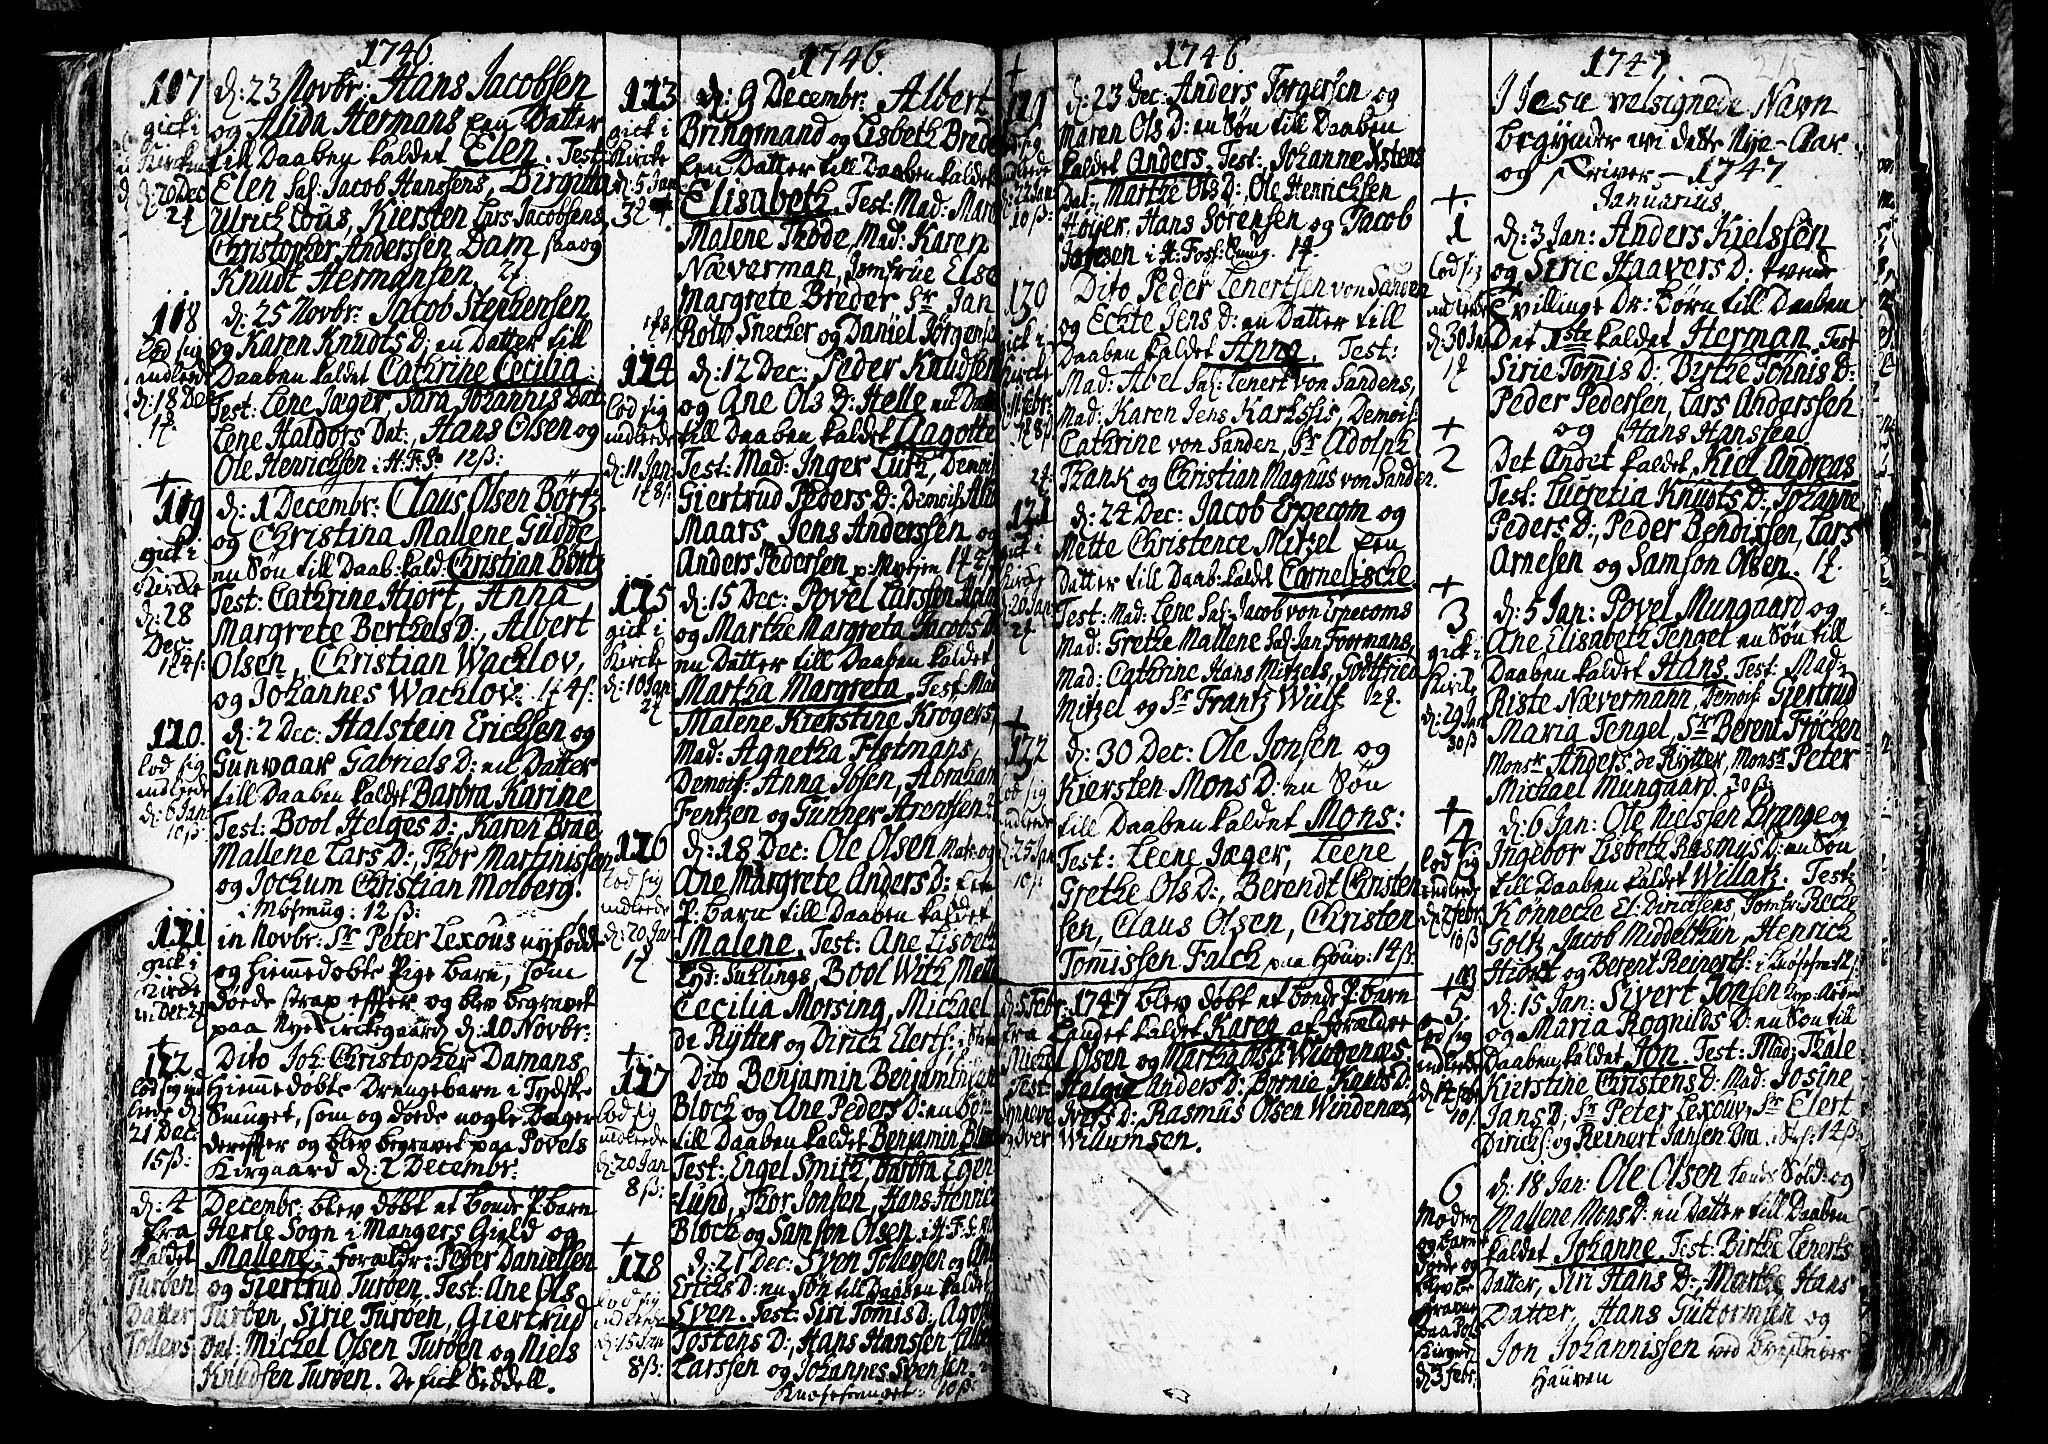 1746.
107
gick i
Kircken
d: 20 Dec
2 ƒ
d: 23 Novbr: Hans Jacobsen
og Alida Hermans een Datter
till Daaben kaldet Elen. Test:
Elen Sal: Jacob Hanssens, Birgitta
Ulrich Lous, Kiersten Lars Jacobsens
Christopher Anderssen Dam saa og
Knudt Hermansen. 2ƒ
108
lod sig
indleede
d: 18 Dec
1ƒ
d: 25 Novbr: Jacob Stephensen
og Karen Knudts D: en Datter till
Daaben kaldet Cathrine Cecilia.
Test: Lene Jæger, Sara Johannis Dat:
Lene Haldors Dat:, Hans Olsen og
Ole Henrichsen i H: F: S: 12 ß:
109
gick i
Kircke
d: 28
Dec:
1ƒ 4 ß:
d: 1 Decembr: Claus Olsen Börtz
og Christina Mallene Gudde
en Søn till Daab: kald: Christian Börtz
Test: Cathrine Hiort, Anna
Margrete Berthels D:, Albert
Olsen, Christian Wachlov,
og Johannes Wachlov. 1ƒ 4 ß:
110.
lod sig
indleede
d: 6 Jan
10 ß:
d: 2 Dec: Halstein Erichsen og
Gunvaar Gabriels D: en Datter
till Daaben kaldet Barbra Karine
Test: Bool Helges D:, Karen Brae
Mallene Lars D:, Thor Martinissen
og Jochum Christian Molberg.
i Møsmug: 12 ß:
111
gick i
Kircke
in Novbr: Sr Peter Lexous nyfødde
og hiemmedøbte Pige barn, som
døede strax effter og blev begravet
paa Nye Kirckegaard d: 10 Novbr:
112
lod sig ind
leede d:
21 Dec:
15 ß:
Dito Joh: Christopher Damans
hiemmedøbte Drengebarn i Tydske
Smuget, som og døede nogle Dager
dereffter og blev begravet paa Povels
Kirgaard d: 2 Decembr:
d: 4 Decembr: blev døbt et bonde P: barn
fra Herle Sogn i Mangers Gield og
kaldet Mallene. forældr: Peder Danielsen
Turøen og Giertrud Turøen. Test: Ane Ols
Datter Turøen, Sirie Turøen, Giertrud
Tollers Dat: Michel Olsen Turøen og Niels
Knudsen Turøen. De fick Seddell.
1746.
113
gick i
Kircke
d: 5 Jan
d: 9 Decembr: Albert
Bringmand og Lisbeth Breder
een Datter till Daaben kaldet
Elisabeth. Test: Mad:
Malene Thode, Mad: Karen
Næverman, Jomfrue Else
Margrete Breder Sr Jan
Rolw Snecker og Daniel Jørgensen
114
lod sig
indleede
d: 11 Jan
1ƒ 8 ß:
d: 12 Dec: Peder Knudsen
og Ane Ols D: Helle en Datter
till Daaben kaldet Aagotte
Test: Mad: Inger Lutz, Demois
Giertrud Peders D: Demois
Maars, Jens Anderssen og
Anders Pedersen
115
gick i
Kircke
d: 10 Jan
2ƒ
d: 15 Dec: Povel Larssen
og Marthe Margreta Jacobs D
en Datter till Daaben kaldet
Martha Margreta. Test: Mad
Malene Kierstine Krogers,
Mad: Agnetha Flotmans
Demois: Anna Ibsen, Abraham
Fentzen og Gunner Arentsen
116
lod sig
indleede
d: 20 Jan
1ƒ
d: 18 Dec: Ole Olsen og
Ane Margrete Anders D: een
P: barn till Daaben kaldet
Malene. Test: Ane Lisbeth
Suhlings, Bool With,
Cecilia Morsing, Michael
de Rÿtter og Dirich
117
lod sig
indleede
d: 20 Jan
8 ß:
Dito Benjamin Benjaminsen
Block og Ane Peders D: en Søn
till Daaben kaldet Benjamin
Test: Engel Smith, Barbra Egen
lund, Thor Jonsen, Hans Henric
Block og Samson Olsen
118
lod sig
indleede
d: 15 Jan
8 ß:
d: 21 Dec: Sven Tollegsen og
Erichs D: en Søn till Daaben kaldet
Sven. Test: Siri Tommis D:,
Tostens D:, Hans Hanssen,
Larssen og Johannes Svensen.
10 ß:
1746.
119
lod sig
d: 22 Jan
10 ß:
d: 23 Dec: Anders Torgersen og
Maren Ols D: en Søn till Daaben
kaldet Anders. Test: Johanne
Dat:, Marthe Ols D:, Ole Henrichsen
Høÿer, Hans Sorensen og Jacob
Jansen 1ƒ.
120
gick i
Kircke
Dito Peder Lenertsen von Sanden
og Echte Jens D: en Datter till
Daaben kaldet Anna. Test:
Mad: Abel Sal: Lenert von Sandens,
Mad: Karen Jens Karhssis, Demois:
Cathrine von Sanden, Sr Adolph
Thank og Christian Magnus von Sanden.
121
gick i
Kircke
d: 20 Jan
2ƒ
d: 24 Dec: Jacob Erpecom og
Mette Christence Mitzel een
Datter till Daab: kaldet Cornelische
Test: Mad: Lene Sal: Jacob von Erpecoms
Mad: Grethe Mallene Sal: Jan Foormans,
Mad: Cathrine Hans Mitzels, Gottfried
Mitzel og Sr Frantz Wülf 2ƒ.
122
lod sig
indleede
d: 25 Jan
10 ß:
d: 30 Dec: Ole Jonsen og
Kiersten Mons D: en Søn
till Daaben kaldet Mons:
Test: Leene Jæger, Leene
Grethe Ols D:, Berendt Christen
sen, Claus Olsen, Christen
Tomissen Falck paa Houv: 14 ß:
d: 5 Febr: 1747 blev døbt et bonde P: barn
fra Landet kaldet Karen af forældre
Olsen og Martha Ols D Windenæs:
Test: Helgie Anders D: Knuds D:
Ivers D: Rasmus Olsen Windenæs,
Willumsen.
1747
I Jesu velsignede Navn
begynder vi dette Nye-Aar
og skriver — 1747
Januarius
1
lod sig
indleede
d: 30 Jan
1ƒ
d: 3 Jan: Anders Kielssen
og Sirie Haavers D: tvende
Tvillinge Dr: børn till Daaben
Det 1ste kaldet Herman. Test
Sirie Tommis D: Birthe Tönnis D:
Peder Pedersen, Lars Anderssen
og Hans Hanssen
2
Det Andet kaldet Kiel Andreas
Test: Lucretia Knudts D:, Johanne
Peders D:, Peder Bendixsen, Lars
Arnesen og Samson Olsen. 1ƒ.
3
gick i
Kircke
d: 29 Jan
30 ß
d: 5 Jan: Povel Mungaard og
Ane Elisabeth Tengel en Søn till
Daaben kaldet Hans. Test: Mad:
Riste Nævermann, Demois: Giertrud
Maria Tengel, Sr Berent Fröchen
Monsr Anders de Rÿtter, Monsr Peter
Michael Mungaard. 30 ß:
4
lod sig
indleede
d: 2 febr
10 ß
d: 6 Jan: Ole Nielssen Brange og
Ingebor Lisbeth Rasmus D: en Søn
till Daaben kaldet Willatz. Test:
Könnecke El: Dirichsens, Jomfr: Recke
Goltz, Jacob Middelthun, Henrich
Hiort og Berent Reinerts:
5
lod sig
indleede
d: 15 Jan: Sivert Jonsen
og Maria Rognilds D: en Søn till
Daaben kaldet Jon. Test: Mad: Thale
Kierstine Christens D: Mad: Josine
Jans D:, Sr Peter Lexouv, Sr Elert
Dirichs: og Reinert Jansen Bra 14 ß:
6
Moder
og barnet
døde og
blev be
gravet
paa Pols
Kirgaard
d: 3 febr:
d: 18 Jan: Ole Olsen Lands Sold: og
Mallene Mons D: en Datter till Daaben
kaldet Johanne. Test: Birthe Lenerts
Datter, Siri Hans D:, Marthe Hans
Datter, Hans Guttormsen og
Jon Johannissen ved
Hauven